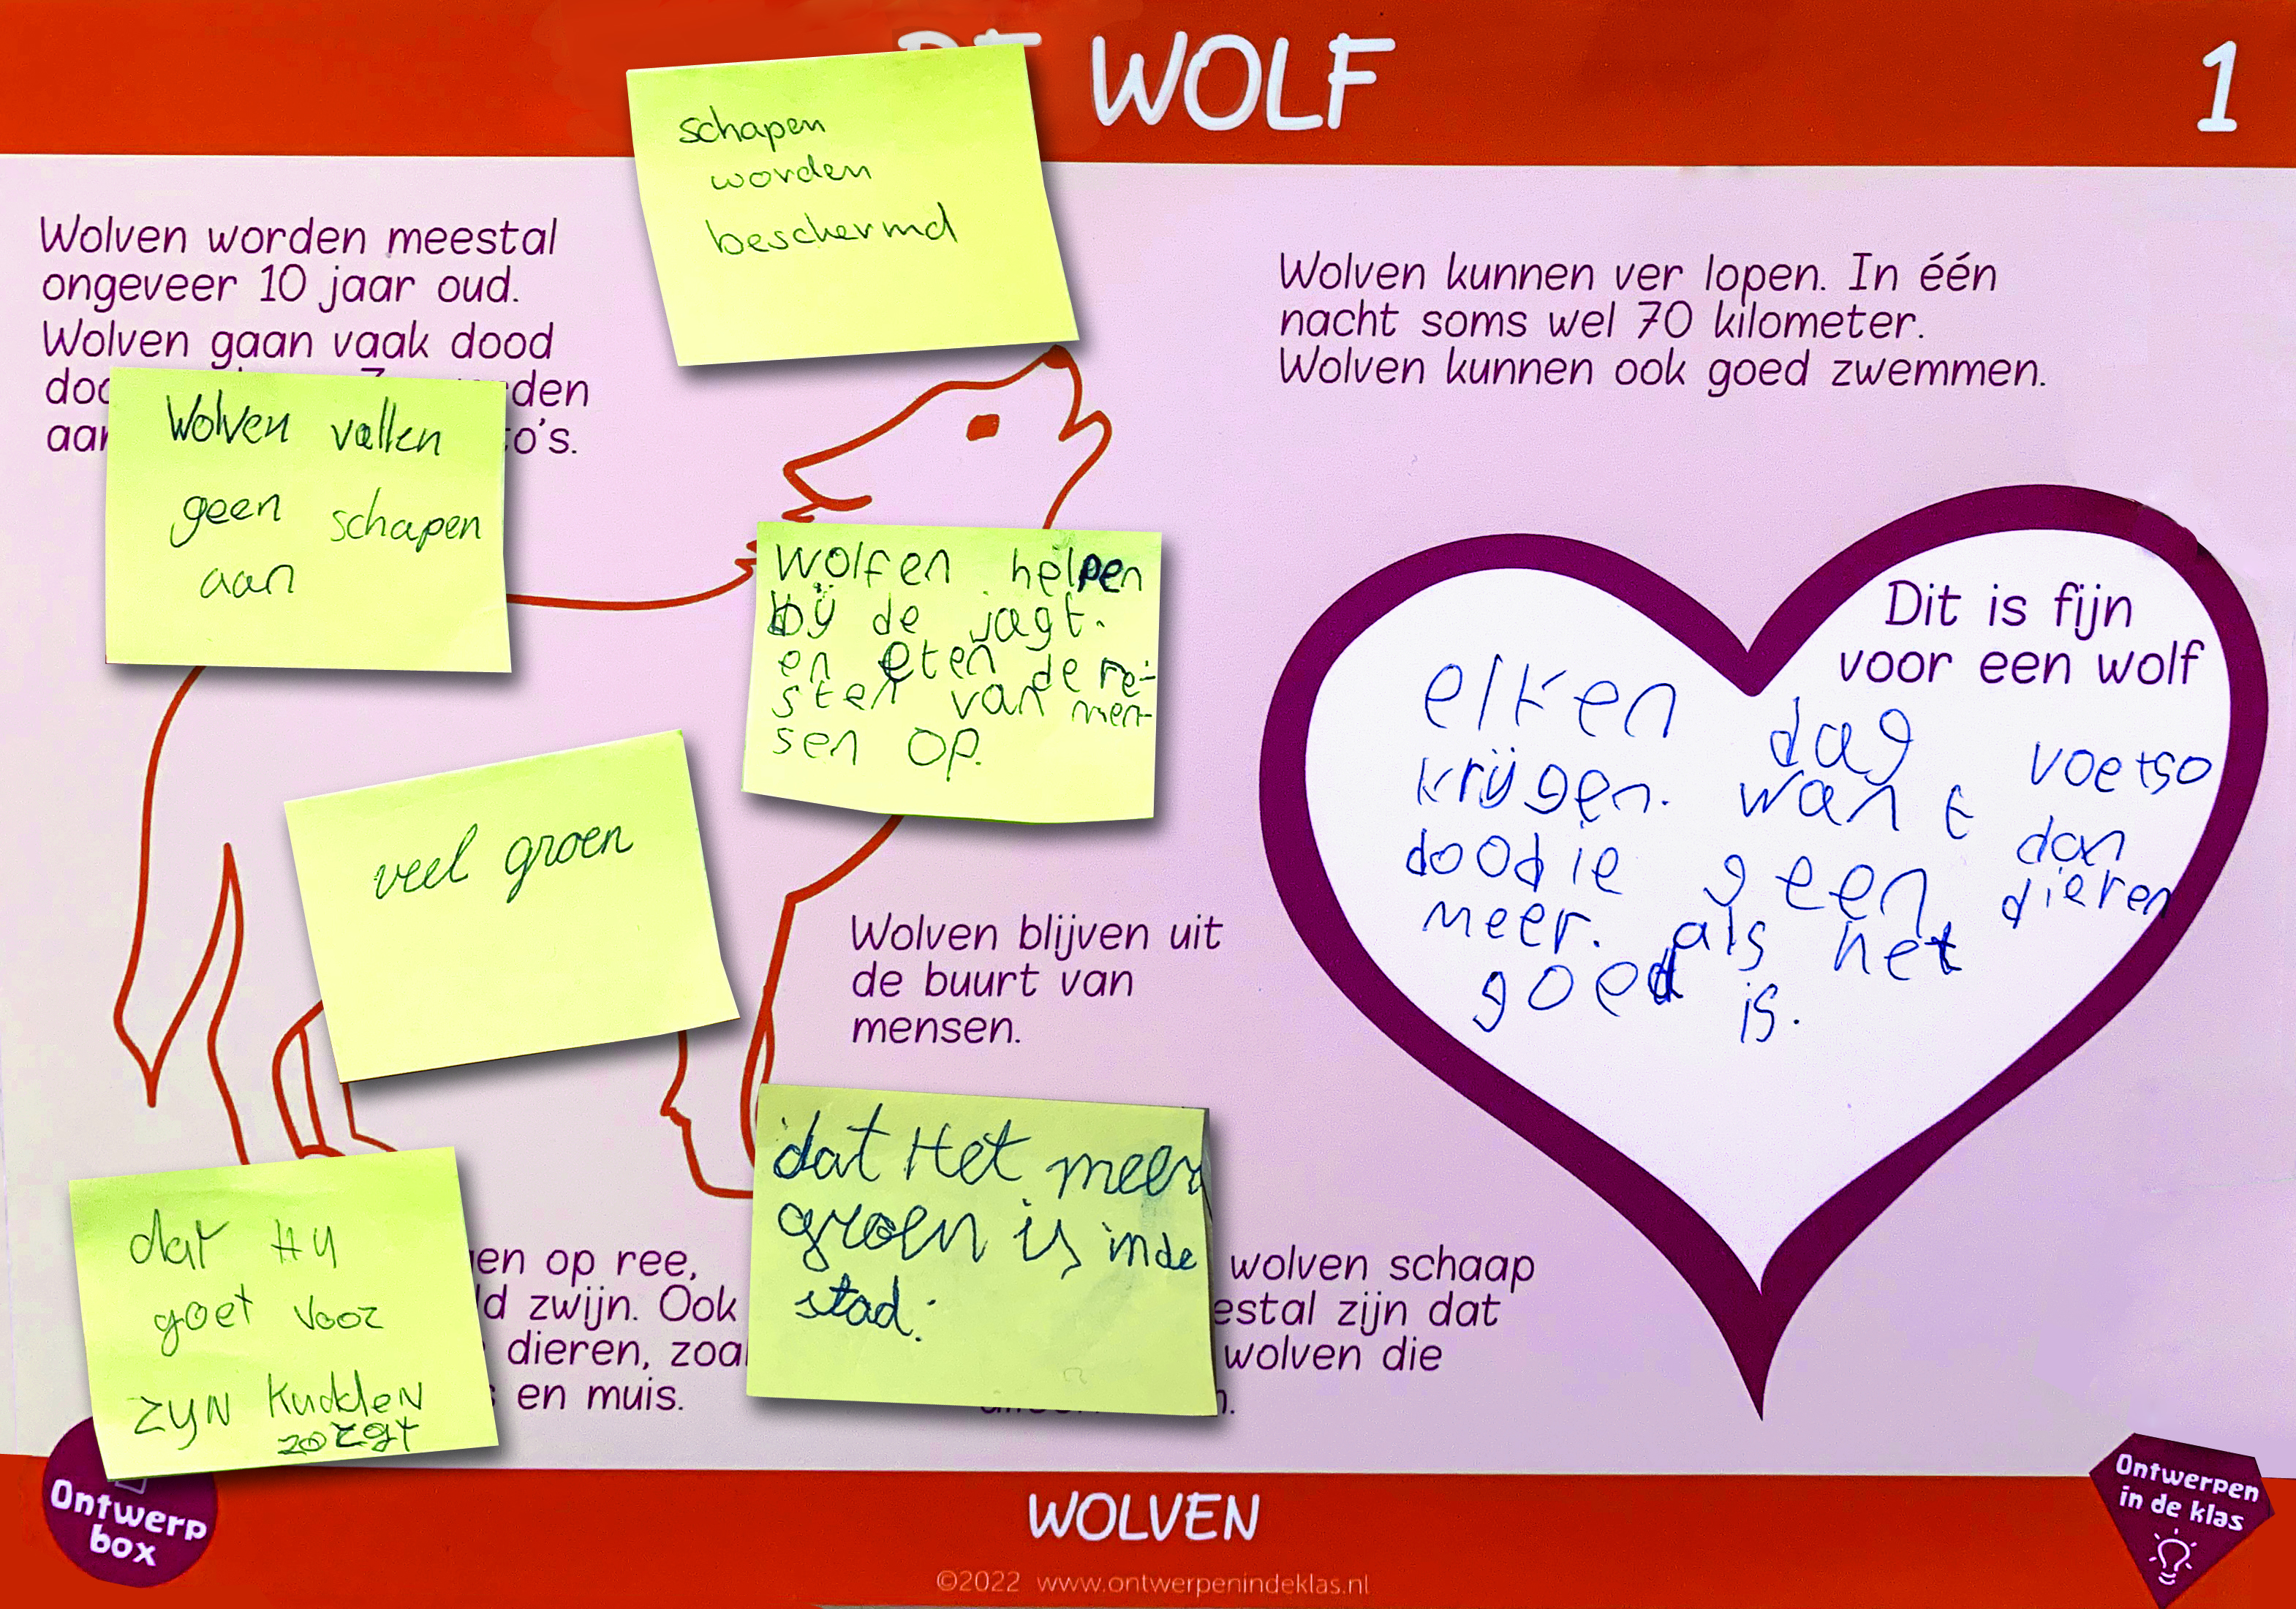 WOLF
1
schapen
worden
beschermd
Wolven worden meestal
ongeveer 10 jaar oud.
Wolven gaan vaak dood
Wolven vallen
geen schapen
aan
Wolven kunnen ver lopen. In één
nacht soms wel 70 kilometer.
Wolven kunnen ook goed zwemmen.
Wolfen helpen
bij de jagt.
en eten de re-
sten van men-
sen op.
Dit is fijn
voor een wolf
elken dag voetso
krijgen. want dan
doodie geen dieren
meer. als het
goed is.
veel groen
Wolven blijven uit
de buurt van
mensen.
dat Het meer
groen is in de
stad.
dat Hy
goet voor
zyn kudden
zorgt
op ree,
zwijn. Ook
dieren,
en muis.
wolven schaap
zijn dat
wolven die
Ontwerp
box
WOLVEN
©2022 www.ontwerpenindeklas.nl
Ontwerpen
in de klas